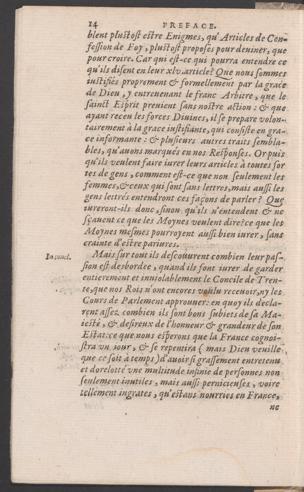 14 PREFACE.
blent plustost estre Enigmes, qu'Articles de Con-
fession de Foy, plustost proposés pour deuiner, que
pour croire. Car qui est-ce qui pourra entendre ce
qu'ils disent en leur xlv.article? Que nous sommes
iustifiés proprement & formellement par la grace
de Dieu, y entreuenant le franc Arbitre, que le
sainct Esprit preuient sans nostre action: & que
ayant receu les forces Diuines, il se prepare volon-
tairement à la grace iustifiante, qui consiste en gra-
ce informante: & plusieurs autres traits sembla-
bles, qu'auons marqués en nos Responses. Or puis
qu'ils veulent faire iurer leurs articles à toutes sor
tes de gens, comment est-ce que non seulement les
femmes, & ceux qui sont sans lettres, mais aussi les
gens lettrés entendront ces façons de parler? Que
iureront-ils donc, sinon qu'ils n'entendent & ne
sçauent ce que les Moynes veulent dire? ce que les
Moynes mesmes pourroyent aussi bien iurer, sans
crainte d'estre pariures.
Mais sur tout ils descouurent combien leur pas-
sion est desbordee, quand ils font iurer de garder
entierement et inuiolablement le Concile de Tren-
te, que nos Rois n'ont encores voulu receuoir, ny les
Cours de Parlement approuuer: en quoy ils decla-
rent assez combien ils sont bons subiets de sa Ma-
iesté, & desireux de l'honneur & grandeur de son
Estat: ce que nous esperons que la France cognoi-
stra vn iour, & se repentira (mais Dieu veuille
que ce soit à temps) d'auoir si grassement entretenu
et dorelotté vne multitude infinie de personnes non
seulement inutiles, mais aussi pernicieuses, voire
tellement ingrates, qu'estans nourries en France,
ne